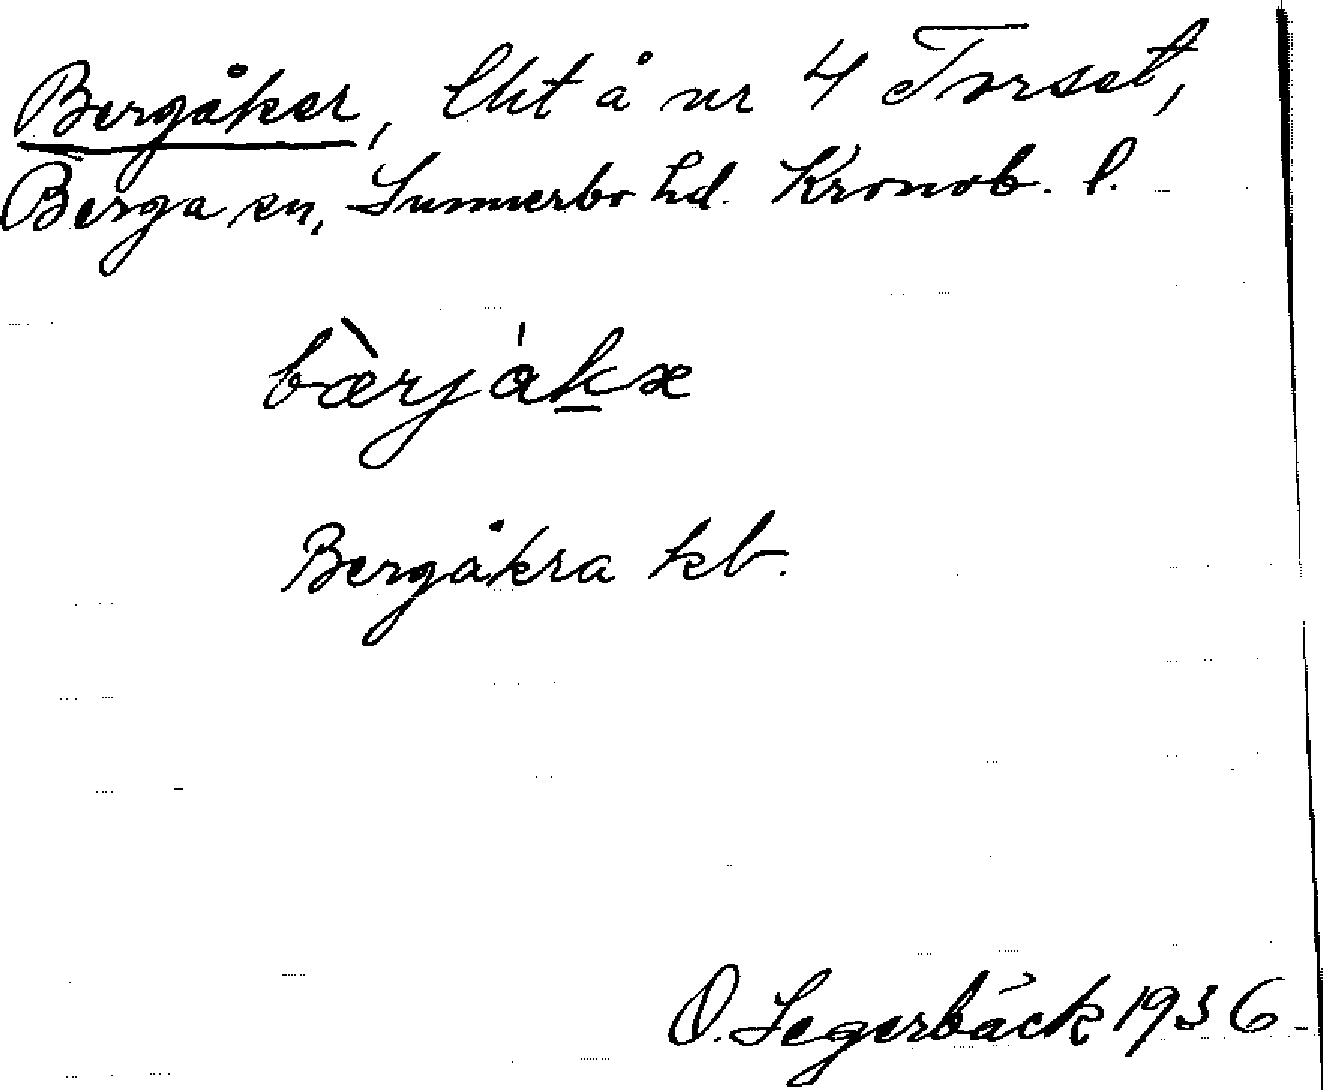 Bergåker, lht å nr 4 Torset,
Berga sn, Sunnerbo hd. Kronob. l.
bærjåkæ
Bergåkra kb.
O. Segerbäck 1936